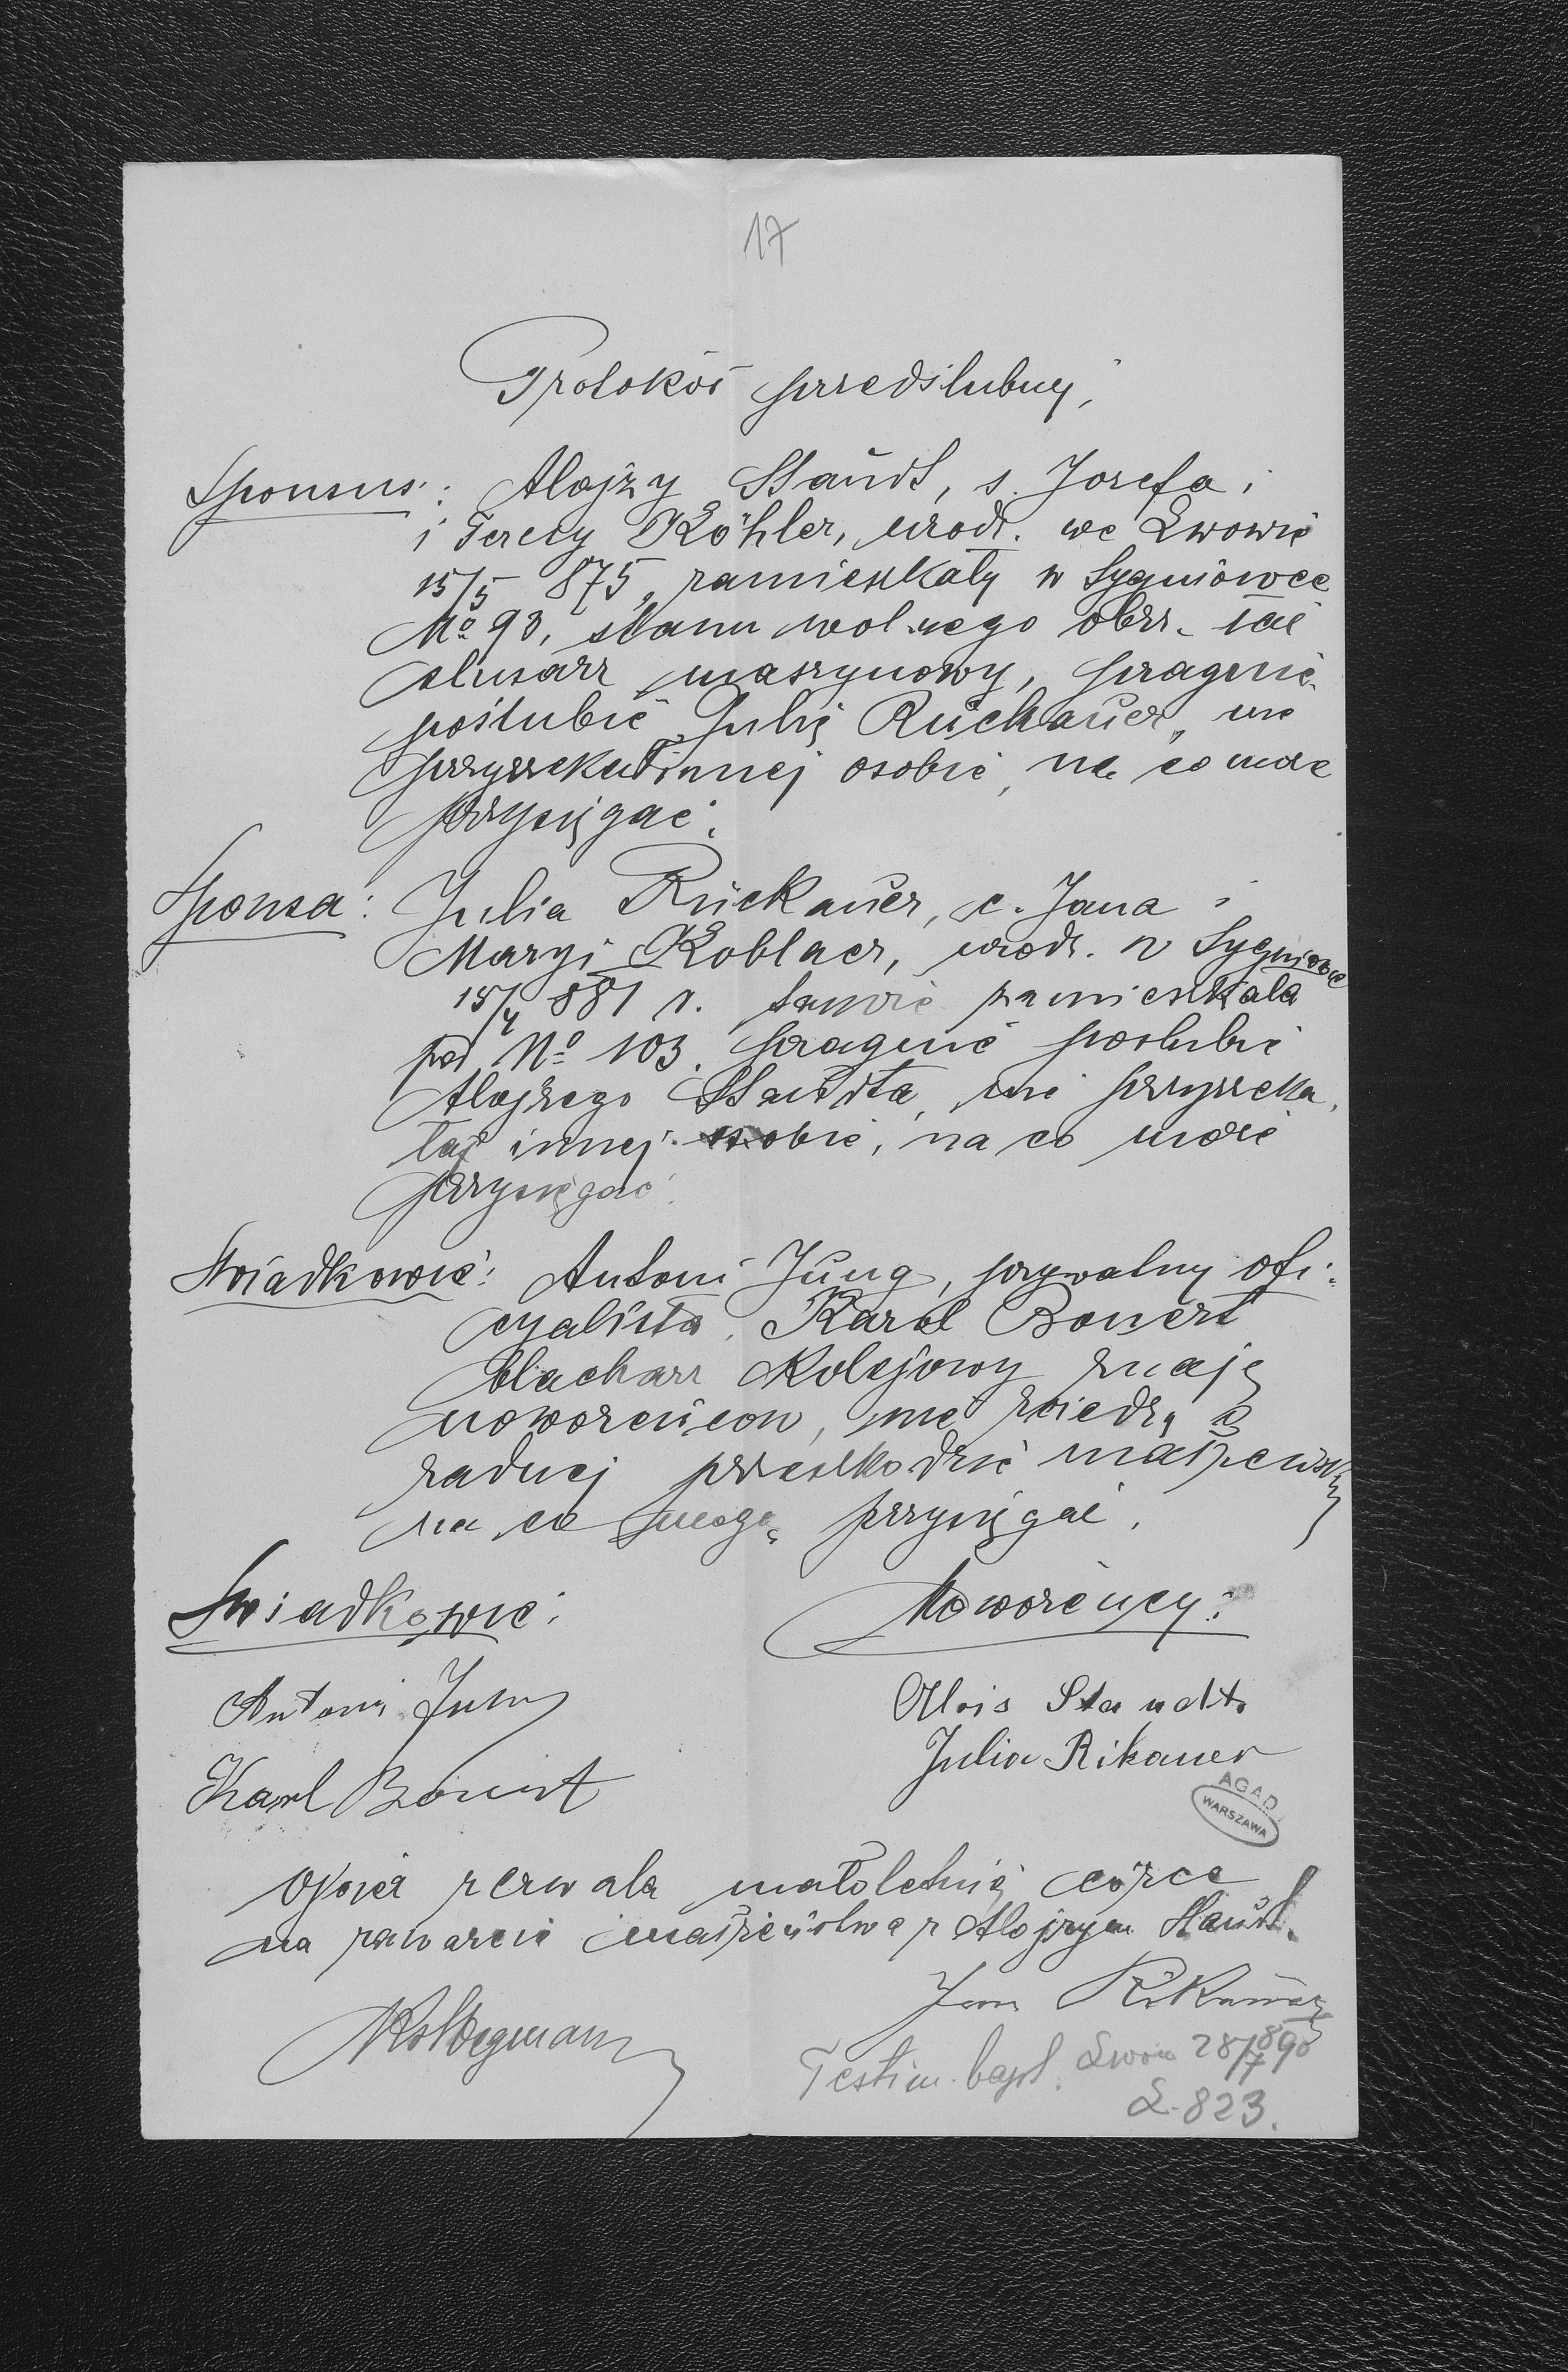 17
Protokół przedślubny,
Sponsus: Alojzy Staudt, s. Józefa i
i Teresy Köhler, urodz. we Lwowie
15/5 875, zamieszkały w Sygniówce
No 93, stanu wolnego obrz. łać
ślusarz maszynowy, pragnie
poślubić Julię Rückauer, nie
przyrzekał innej osobie, na co może
przysięgać.
Sponsa: Julia Rückauer, c. Jana i
Maryi Koblaer, urodz. w Sygniówce
15/4 881 r. tamże zamieszkała
pod No 103, pragnie poślubić
Alojzego Staudta, nie przyrzeka,
łaż innej osobie, na co może
przysięgać.
Świadkowie: Antoni Jung, prywatny ofi-
cyalista, Karol Bonert
blacharz kolejowy znają
nowożeńców, nie wiedzą o
żadnej przeszkodzie małżeńskiej
na co mogą przysięgać.
Świadkowie: Nowożeńcy:
Antoni Jung Alois Staudt
Karl Bonert Julia Rikauer
AGAD
WARSZAWA
Ojciec zezwala małoletniej córce
na zawarcie małżeństwa z Alojzym Staudt.
Jan Rikauer
Testim. bapt. Lwów 28/7 890
L. 823.